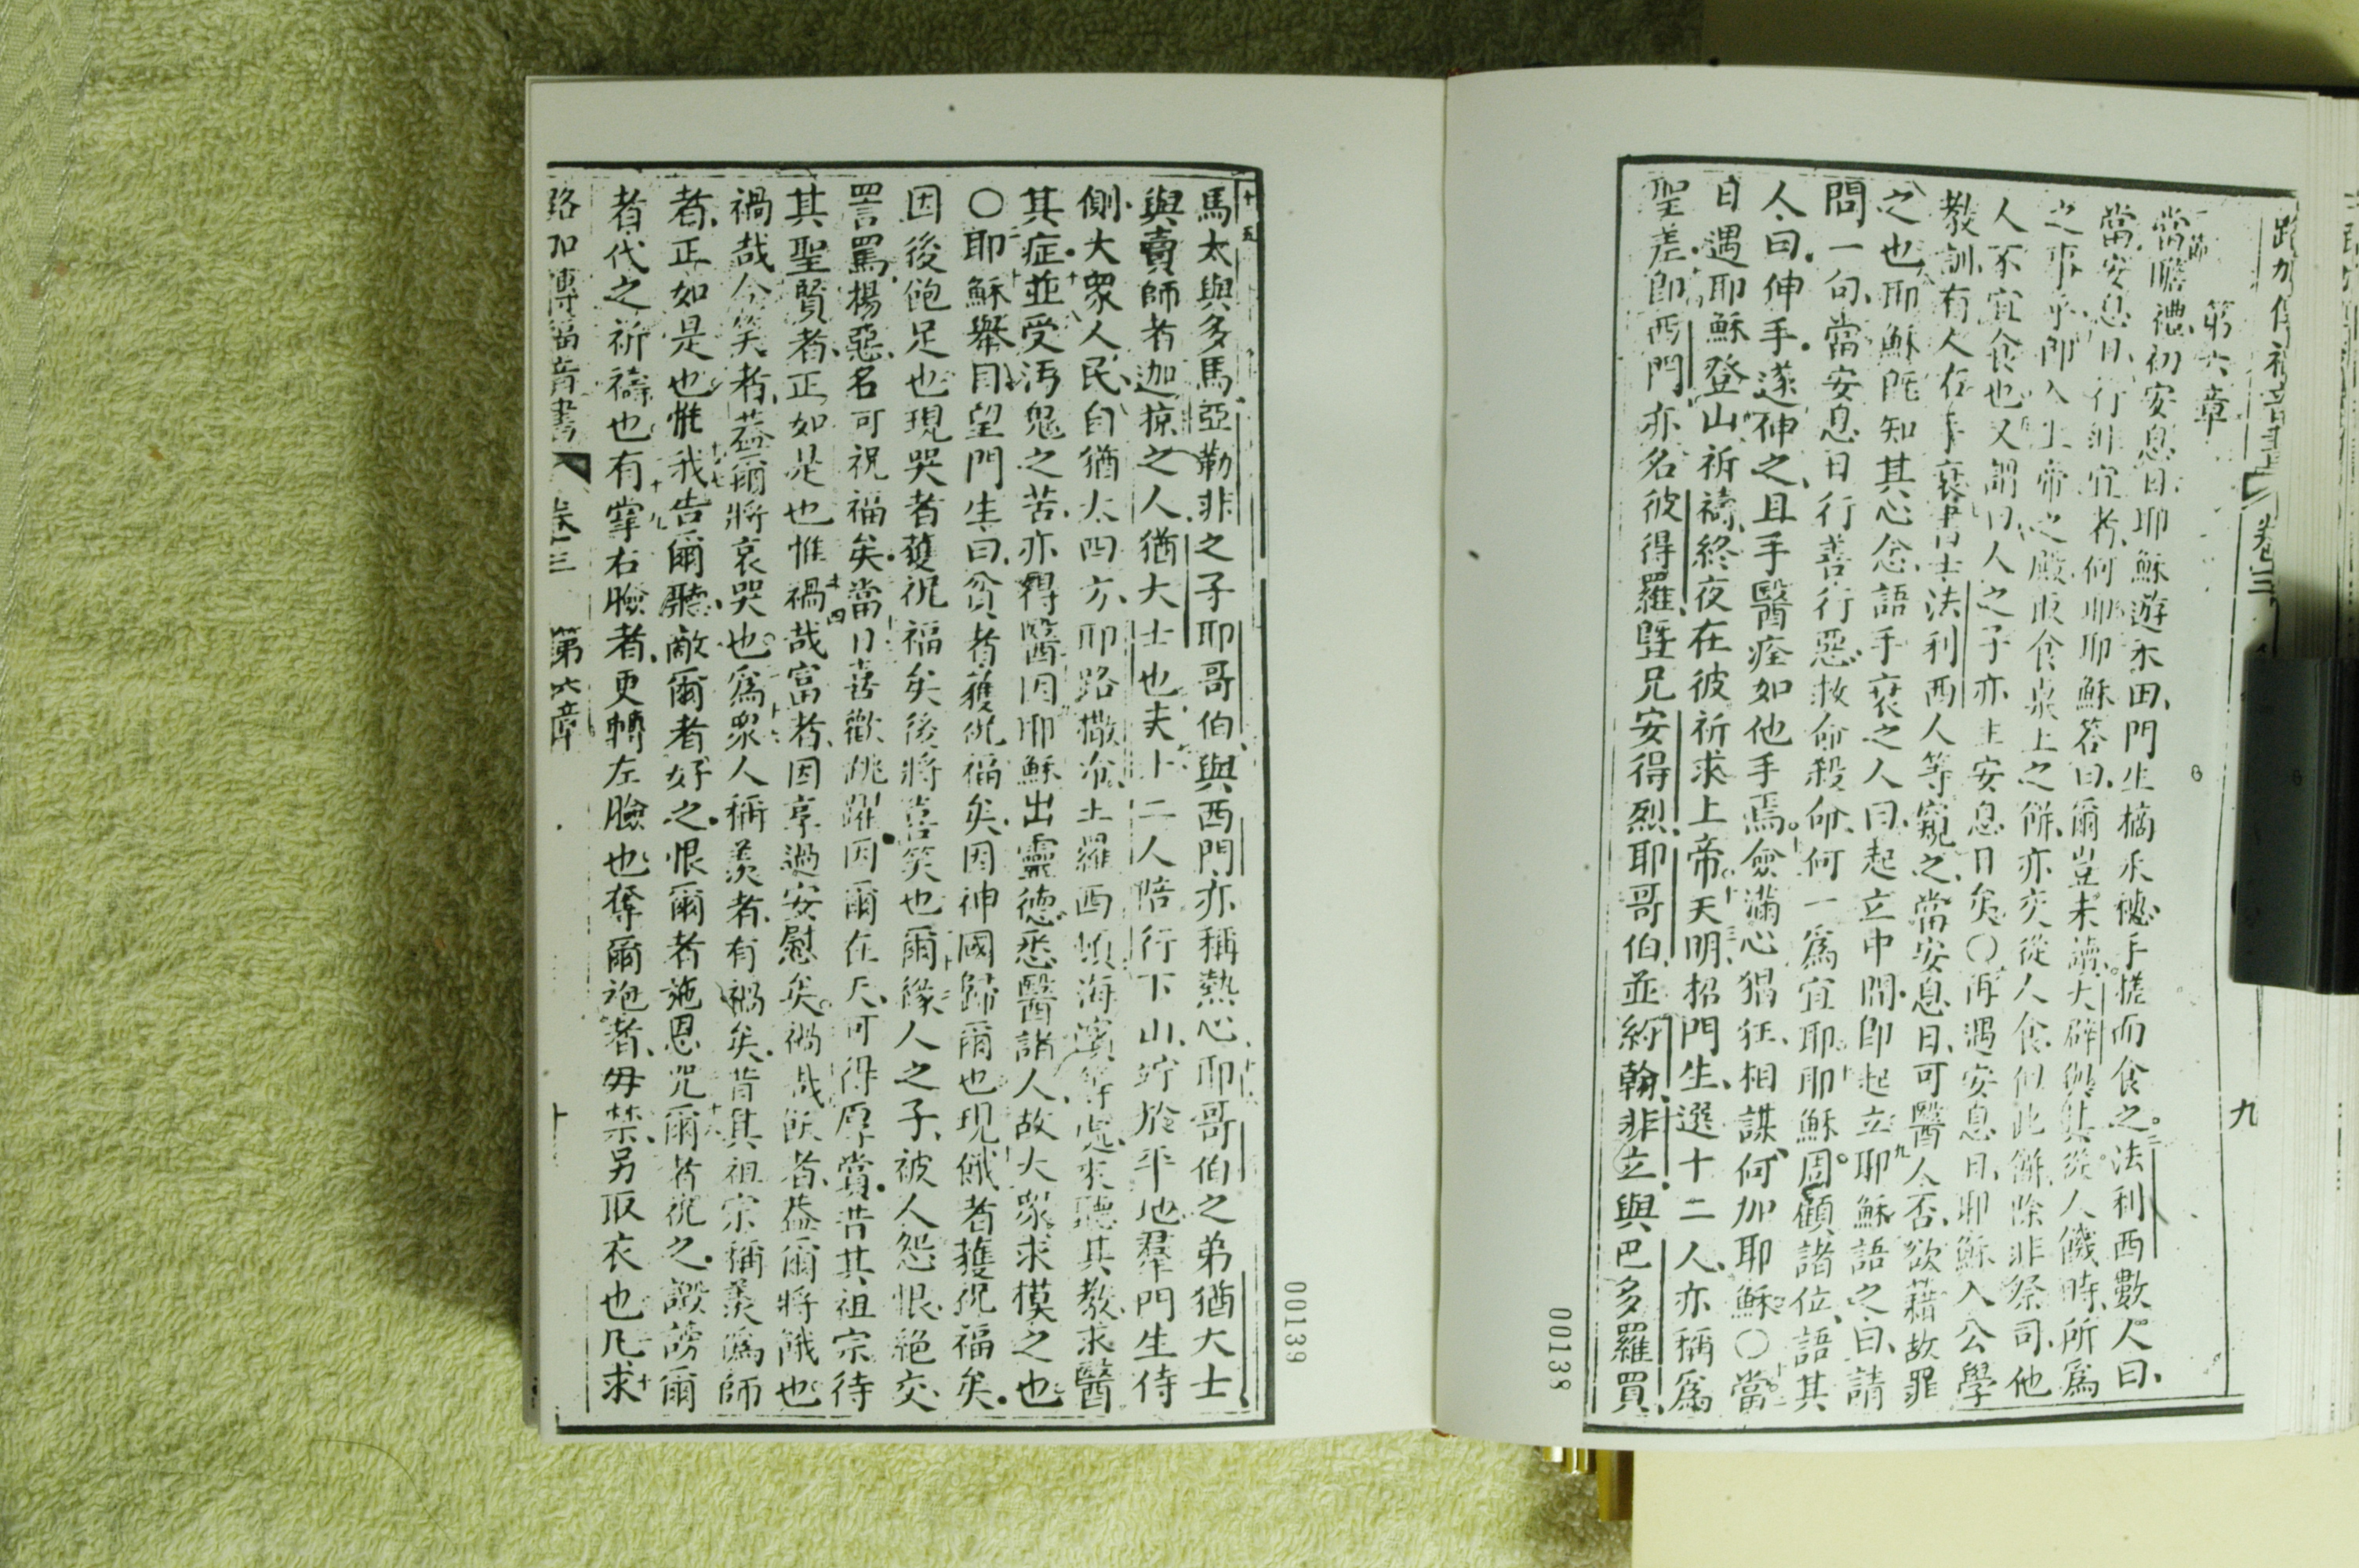 路加傳福音書 卷三
九
第六章
當瞻禮初安息日耶穌遊禾田門生摘禾穗手搓而食之法利西數人曰
當安息日行非宜者何耶耶穌答曰爾豈未讀大辟與其從人饑時所為
之事乎即入上帝之殿取食桌上之餅亦交從人食但此餅除非祭司他
人不宜食也又謂曰人之子亦主安息日矣〇再遇安息日耶穌入公學
教訓有人在手衰書士法利西人等窺之當安息日可醫人否欲藉故罪
之也耶穌既知其心念語手衰之人曰起立中間即起立耶穌語之曰請
問一句當安息日行善行惡救命殺命何一為宜耶耶穌周顧諸位語其
人曰伸手遂伸之且手醫痊如他手焉僉滿心猖狂相謀何加耶穌〇當
日遇耶穌登山祈禱終夜在彼祈求上帝天明招門生選十二人亦稱為
聖差即西門亦名彼得羅曁兄安得烈耶哥伯並約翰非立與巴多羅買
00138
馬太與多馬亞勒非之子耶哥伯與西門亦稱熱心耶哥伯之弟猶大士
與賣師者迦掠之人猶大士也夫十二人陪行下山竚於平地羣門生侍
側大衆人民自猶太四方耶路撒冷土羅西頓海濱等處來聽其教求醫
其症並受汚鬼之苦亦得醫因耶穌出靈德悉醫諸人故大衆求摸之也
〇耶穌舉目望門生曰貧者獲祝福矣因神國歸爾也現饑者獲祝福矣
因後飽足也現哭者獲祝福矣後將喜笑也爾緣人之子被人怨恨絕交
詈罵楊惡名可祝福矣當日喜歡跳躍因爾在天可得厚賞昔其祖宗待
其聖賢者正如是也惟禍哉富者因享過安慰矣禍哉飫者葢爾將餓也
禍哉今笑者葢爾將哀哭也為衆人稱羨者有禍矣昔其祖宗稱羨偽師
者正如是也惟我告爾聽敵爾者好之恨爾者施恩咒爾者祝之譭謗爾
者代之祈禱也有掌右臉者更轉左臉也奪爾袍者毋禁另取衣也凡求
路加傳福音書 卷三 第六章
十
00139